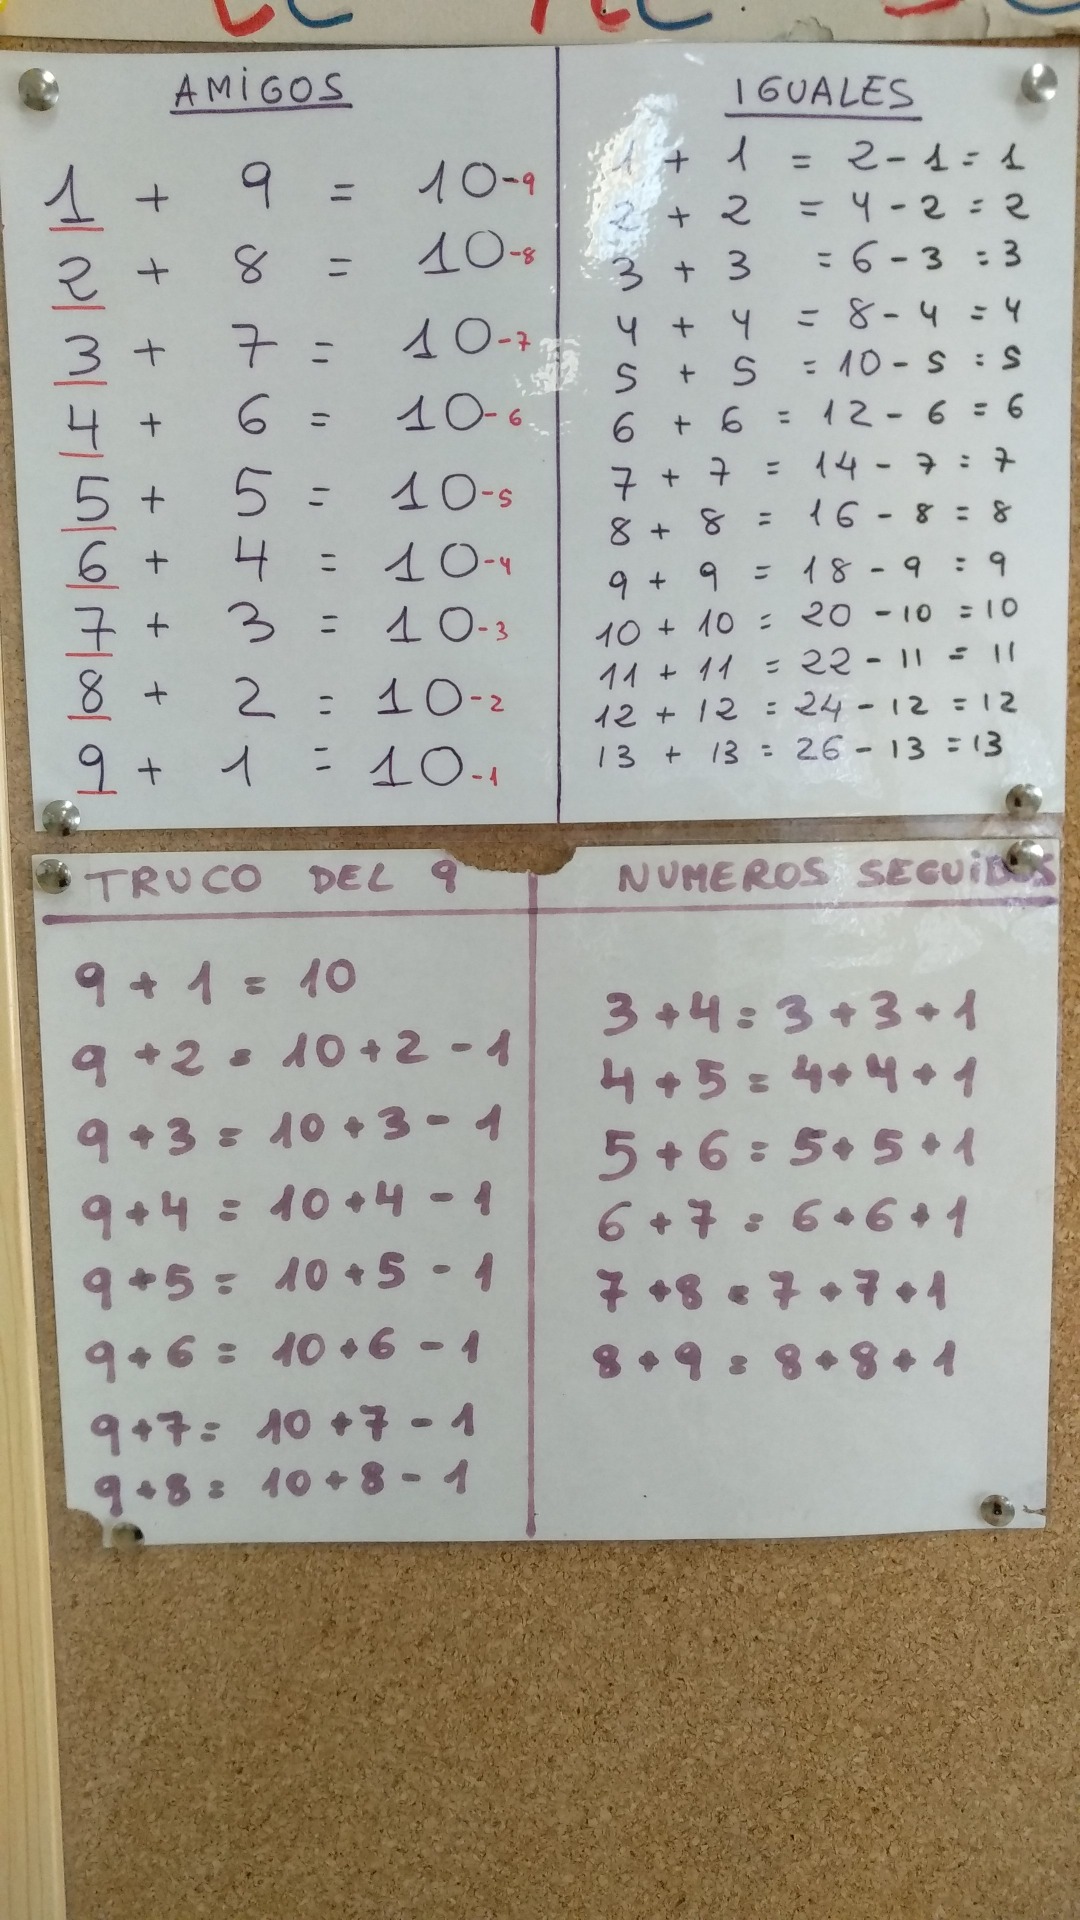 AMiGOS
1 + 9 = 10-9
2 + 8 = 10-8
3 + 7 = 10-7
4 + 6 = 10-6
5 + 5 = 10-5
6 + 4 = 10-4
7 + 3 = 10-3
8 + 2 = 10-2
9 + 1 = 10-1
IGUALES
1 + 1 = 2 - 1 = 1
2 + 2 = 4 - 2 = 2
3 + 3 = 6 - 3 = 3
4 + 4 = 8 - 4 = 4
5 + 5 = 10 - 5 = 5
6 + 6 = 12 - 6 = 6
7 + 7 = 14 - 7 = 7
8 + 8 = 16 - 8 = 8
9 + 9 = 18 - 9 = 9
10 + 10 = 20 - 10 = 10
11 + 11 = 22 - 11 = 11
12 + 12 = 24 - 12 = 12
13 + 13 = 26 - 13 = 13
TRUCO DEL 9
9 + 1 = 10
9 + 2 = 10 + 2 - 1
9 + 3 = 10 + 3 - 1
9 + 4 = 10 + 4 - 1
9 + 5 = 10 + 5 - 1
9 + 6 = 10 + 6 - 1
9 + 7 = 10 + 7 - 1
9 + 8 = 10 + 8 - 1
NUMEROS SEGUiDOS
3 + 4 = 3 + 3 + 1
4 + 5 = 4 + 4 + 1
5 + 6 = 5 + 5 + 1
6 + 7 = 6 + 6 + 1
7 + 8 = 7 + 7 + 1
8 + 9 = 8 + 8 + 1